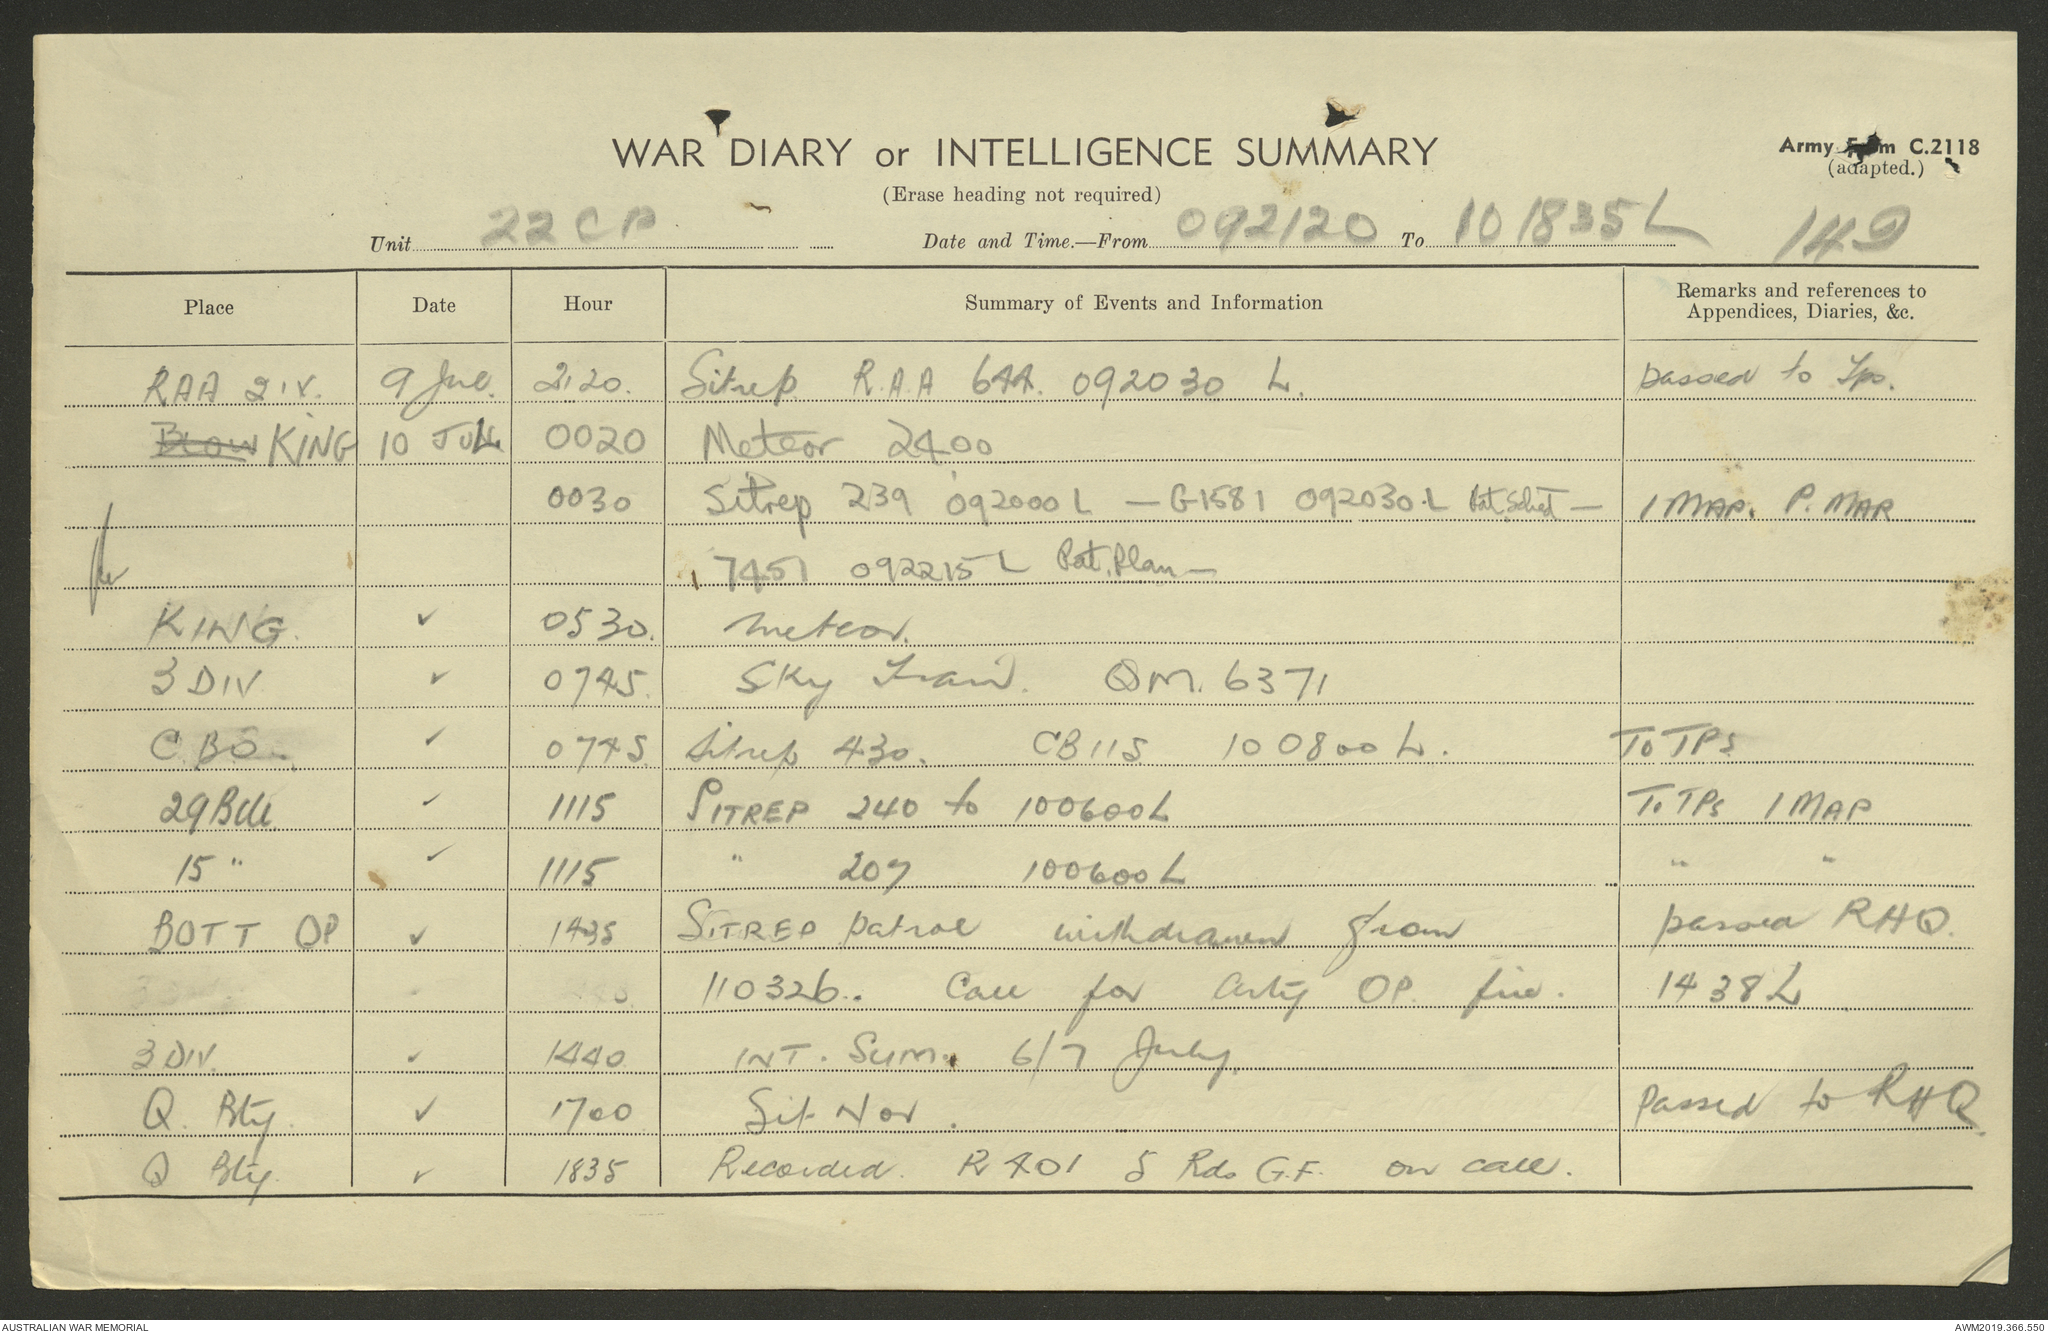 WAR DIARY or INTELLIGENCE SUMMARY
Army Form C.2118
(Erase heading not required)
(adapted.)
Unit 22 CP Date and Time.—From 092120 To 101835L 149
Place Date Hour Summary of Events and Information Remarks and references to
Appendices, Diaries, &c.
RAA 2 IX. 9 Jul. 2120. Sitrep R.A.A 644. 092030 L. passed to Tps.
Blow KING 10 JUL 0020 Meteor 2400
0030 Sitrep 239 092000L — G1581 092030.L Pat. Sched — 1 MAP. P. MAR
7451 092215L Pat. Plan —
KING. ✓ 0530. Meteor.
3 DIV ✓ 0745. Sky Train. QM. 6371
C.B.O. ✓ 0745. Sitrep 430. CB115 100800 L. To TPs
29 Bde ✓ 1115 SITREP 240 to 100600L To TPs 1 MAP
15 " ✓ 1115 " 207 100600L " "
BOTT OP ✓ 1435 SITREP patrol withdrawn from passed RHQ.
110326.. Call for Arty OP. fire. 1438L
3 DIV. ✓ 1440 INT. SUM. 6/7 July.
Q. Bty. ✓ 1700 Sit Nor. Passed to RHQ
Q Bty. ✓ 1835 Recorded. R 401 5 Rds G.F. on call.
AUSTRALIAN WAR MEMORIAL AWM2019.366.550